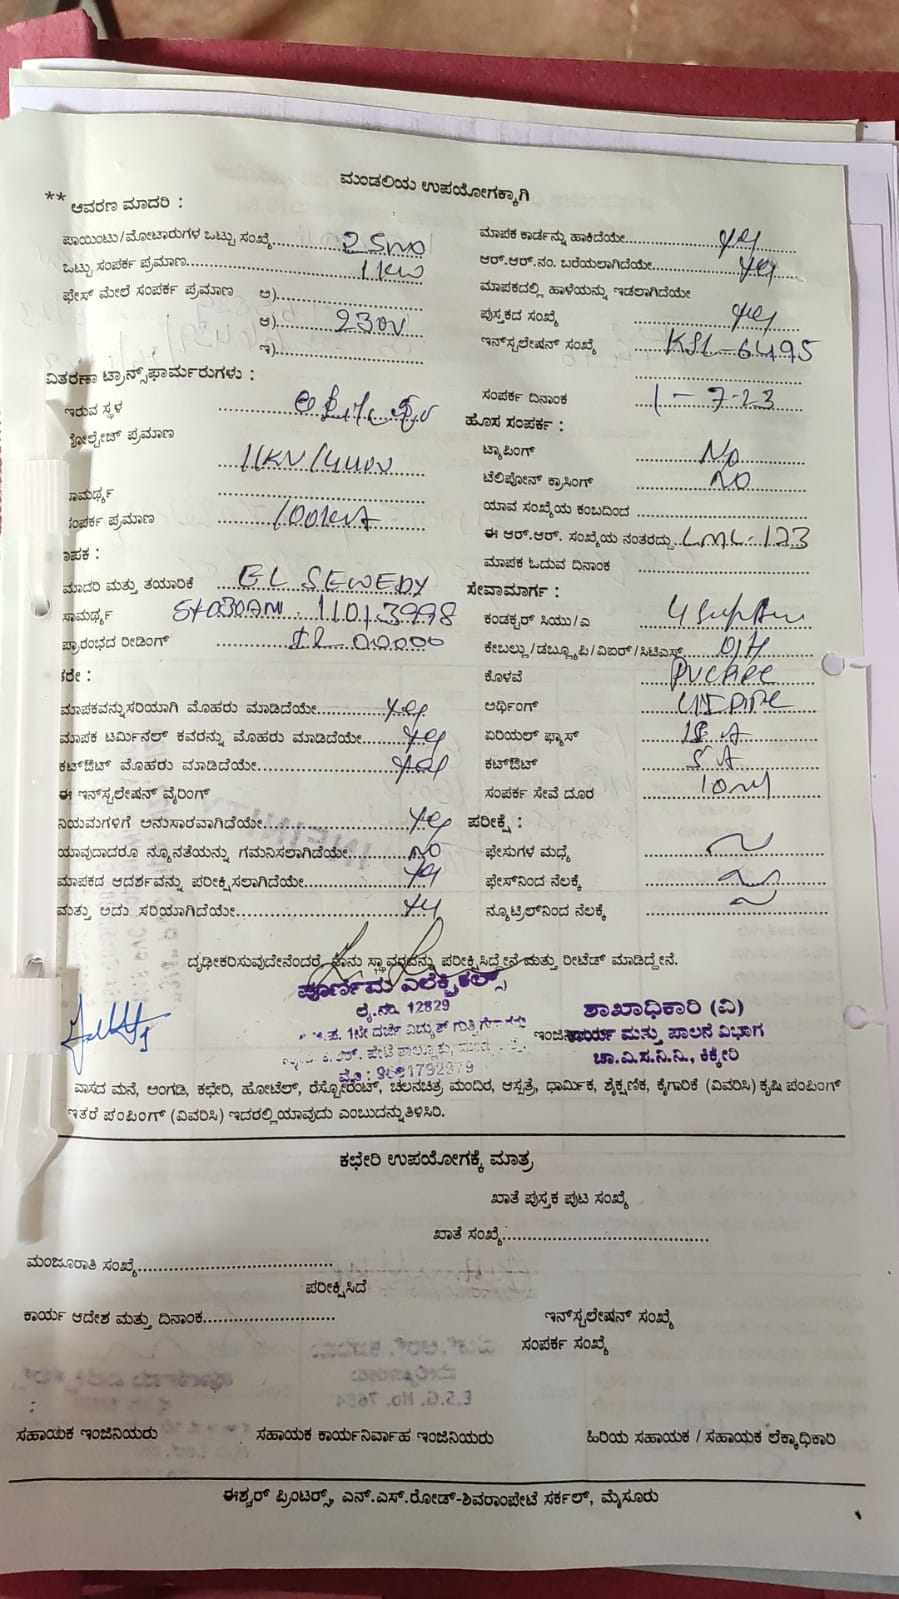 ಮಂಡಲಿಯ ಉಪಯೋಗಕ್ಕಾಗಿ
** ಆವರಣ ಮಾದರಿ :
ಪಾಯಿಂಟು/ಮೋಟಾರುಗಳ ಒಟ್ಟು ಸಂಖ್ಯೆ
ಒಟ್ಟು ಸಂಪರ್ಕ ಪ್ರಮಾಣ 1 KW
ಫೇಸ್ ಮೇಲೆ ಸಂಪರ್ಕ ಪ್ರಮಾಣ ಅ)
ಆ) 230V
ಇ)
ವಿತರಣಾ ಟ್ರಾನ್ಸ್‌ಫಾರ್ಮರುಗಳು :
ಇರುವ ಸ್ಥಳ
ವೋಲ್ಟೇಜ್ ಪ್ರಮಾಣ
11KV/440V
ಸಾಮರ್ಥ್ಯ
ಸಂಪರ್ಕ ಪ್ರಮಾಣ 100KVA
ಮಾಪಕ :
ಮಾದರಿ ಮತ್ತು ತಯಾರಿಕೆ EL SEWEDY
ಸಾಮರ್ಥ್ಯ 11013998
ಪ್ರಾರಂಭದ ರೀಡಿಂಗ್
ಕರೇ :
ಮಾಪಕವನ್ನು ಸರಿಯಾಗಿ ಮೊಹರು ಮಾಡಿದೆಯೇ yes
ಮಾಪಕ ಟರ್ಮಿನಲ್ ಕವರನ್ನು ಮೊಹರು ಮಾಡಿದೆಯೇ yes
ಕಟ್‌ಔಟ್ ಮೊಹರು ಮಾಡಿದೆಯೇ yes
ಈ ಇನ್‌ಸ್ಟಲೇಷನ್ ವೈರಿಂಗ್
ನಿಯಮಗಳಿಗೆ ಅನುಸಾರವಾಗಿದೆಯೇ yes
ಯಾವುದಾದರೂ ನ್ಯೂನತೆಯನ್ನು ಗಮನಿಸಲಾಗಿದೆಯೇ NO
ಮಾಪಕದ ಆದರ್ಶವನ್ನು ಪರೀಕ್ಷಿಸಲಾಗಿದೆಯೇ yes
ಮತ್ತು ಅದು ಸರಿಯಾಗಿದೆಯೇ yes
ಮಾಪಕ ಕಾರ್ಡನ್ನು ಹಾಕಿದೆಯೇ yes
ಆರ್.ಆರ್.ನಂ. ಬರೆಯಲಾಗಿದೆಯೇ yes
ಮಾಪಕದಲ್ಲಿ ಹಾಳೆಯನ್ನು ಇಡಲಾಗಿದೆಯೇ
ಪುಸ್ತಕದ ಸಂಖ್ಯೆ yes
ಇನ್‌ಸ್ಟಲೇಷನ್ ಸಂಖ್ಯೆ KSL-6495
ಸಂಪರ್ಕ ದಿನಾಂಕ 1-7-23
ಹೊಸ ಸಂಪರ್ಕ :
ಟ್ಯಾಪಿಂಗ್ NO
ಟೆಲಿಪೋನ್ ಕ್ರಾಸಿಂಗ್ NO
ಯಾವ ಸಂಖ್ಯೆಯ ಕಂಬದಿಂದ
ಈ ಆರ್.ಆರ್. ಸಂಖ್ಯೆಯ ನಂತರದ್ದು LML-123
ಮಾಪಕ ಓದುವ ದಿನಾಂಕ
ಸೇವಾಮಾರ್ಗ :
ಕಂಡಕ್ಟರ್ ಸಿಯು/ಎ
ಕೇಬಲ್ಲು/ಡಬ್ಲ್ಯೂಪಿ/ವಿಐರ್/ಸಿಟಿಎಸ್ O/H
ಕೊಳವೆ
ಅರ್ಥಿಂಗ್
ಏರಿಯಲ್ ಫ್ಯೂಸ್
ಕಟ್‌ಔಟ್ 5 A
ಸಂಪರ್ಕ ಸೇವೆ ದೂರ 10 M
ಪರೀಕ್ಷೆ :
ಫೇಸುಗಳ ಮಧ್ಯೆ
ಫೇಸ್‌ನಿಂದ ನೆಲಕ್ಕೆ
ನ್ಯೂಟ್ರಿಲ್‌ನಿಂದ ನೆಲಕ್ಕೆ
ದೃಢೀಕರಿಸುವುದೇನೆಂದರೆ, ನಾನು ಸ್ಥಾವರವನ್ನು ಪರೀಕ್ಷಿಸಿದ್ದೇನೆ ಮತ್ತು ರೀಟೆಡ್ ಮಾಡಿದ್ದೇನೆ.
ಪೂರ್ಣಿಮ ಎಲೆಕ್ಟ್ರಿಕಲ್ಸ್
ಲೈ.ನಂ. 12829
ಶಾಖಾಧಿಕಾರಿ (ವಿ)
ಕಾರ್ಯ ಮತ್ತು ಪಾಲನೆ ವಿಭಾಗ
ಚಾ.ವಿ.ಸ.ನಿ.ನಿ., ಕಿಕ್ಕೇರಿ
ವಾಸದ ಮನೆ, ಅಂಗಡಿ, ಕಛೇರಿ, ಹೋಟೆಲ್, ರೆಸ್ಟೋರೆಂಟ್, ಚಲನಚಿತ್ರ ಮಂದಿರ, ಆಸ್ಪತ್ರೆ, ಧಾರ್ಮಿಕ, ಶೈಕ್ಷಣಿಕ, ಕೈಗಾರಿಕೆ (ವಿವರಿಸಿ) ಕೃಷಿ ಪಂಪಿಂಗ್
ಇತರೆ ಪಂಪಿಂಗ್ (ವಿವರಿಸಿ) ಇದರಲ್ಲಿ ಯಾವುದು ಎಂಬುದನ್ನು ತಿಳಿಸಿರಿ.
ಕಛೇರಿ ಉಪಯೋಗಕ್ಕೆ ಮಾತ್ರ
ಖಾತೆ ಪುಸ್ತಕ ಪುಟ ಸಂಖ್ಯೆ
ಖಾತೆ ಸಂಖ್ಯೆ
ಮಂಜೂರಾತಿ ಸಂಖ್ಯೆ
ಪರೀಕ್ಷಿಸಿದೆ
ಕಾರ್ಯ ಆದೇಶ ಮತ್ತು ದಿನಾಂಕ
ಇನ್‌ಸ್ಟಲೇಷನ್ ಸಂಖ್ಯೆ
ಸಂಪರ್ಕ ಸಂಖ್ಯೆ
ಸಹಾಯಕ ಇಂಜಿನಿಯರು ಸಹಾಯಕ ಕಾರ್ಯನಿರ್ವಾಹ ಇಂಜಿನಿಯರು ಹಿರಿಯ ಸಹಾಯಕ / ಸಹಾಯಕ ಲೆಕ್ಕಾಧಿಕಾರಿ
ಈಶ್ವರ್ ಪ್ರಿಂಟರ್ಸ್, ಎನ್.ಎಸ್.ರೋಡ್-ಶಿವರಾಂಪೇಟೆ ಸರ್ಕಲ್, ಮೈಸೂರು